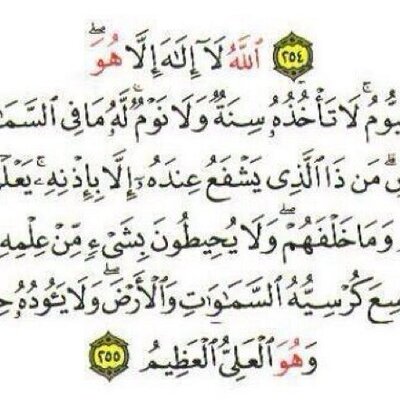 ٢٥٤ ٱللَّهُ لَآ إِلَٰهَ إِلَّا هُوَ ۖ
يُّومُ ۚ لَا تَأْخُذُهُۥ سِنَةٌ وَلَا نَوْمٌ ۚ لَّهُۥ مَا فِى ٱلسَّمَٰ
مَن ذَا ٱلَّذِى يَشْفَعُ عِندَهُۥٓ إِلَّا بِإِذْنِهِۦ ۚ يَعْلَ
وَمَا خَلْفَهُمْ ۖ وَلَا يُحِيطُونَ بِشَىْءٍ مِّنْ عِلْمِهِ
سِعَ كُرْسِيُّهُ ٱلسَّمَٰوَٰتِ وَٱلْأَرْضَ ۖ وَلَا يَـُٔودُهُۥ حِ
وَهُوَ ٱلْعَلِىُّ ٱلْعَظِيمُ ٢٥٥